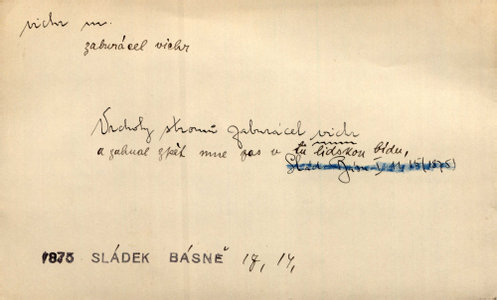 vichr m.
zaburácel vichr
Vrcholy stromů zaburácel vichr
a zahnal zpět mne zas v tu lidskou bídu,
Slád. Básně I, 14, 15 (1875)
1875 SLÁDEK BÁSNĚ 17, 14,